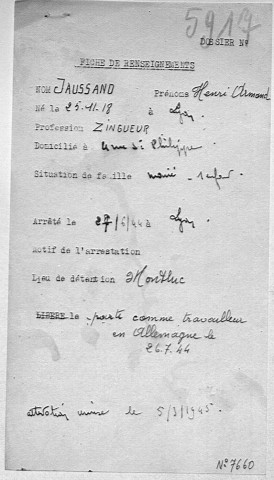 5917
DOSSIER N°
FICHE DE RENSEIGNEMENTS
NOM JAUSSAND Prénoms Henri Armand
Né le 25-11-18 à Lyon.
Profession ZINGUEUR
Domicilié à 4 rue St Philippe
Situation de famille marié - 1 enfant.
Arrêté le 27/6/44 à Lyon.
Motif de l'arrestation
Lieu de détention Montluc
LIBERE le parti comme travailleur
en Allemagne le
26.7.44
le 5/3/1945.
N° 7660